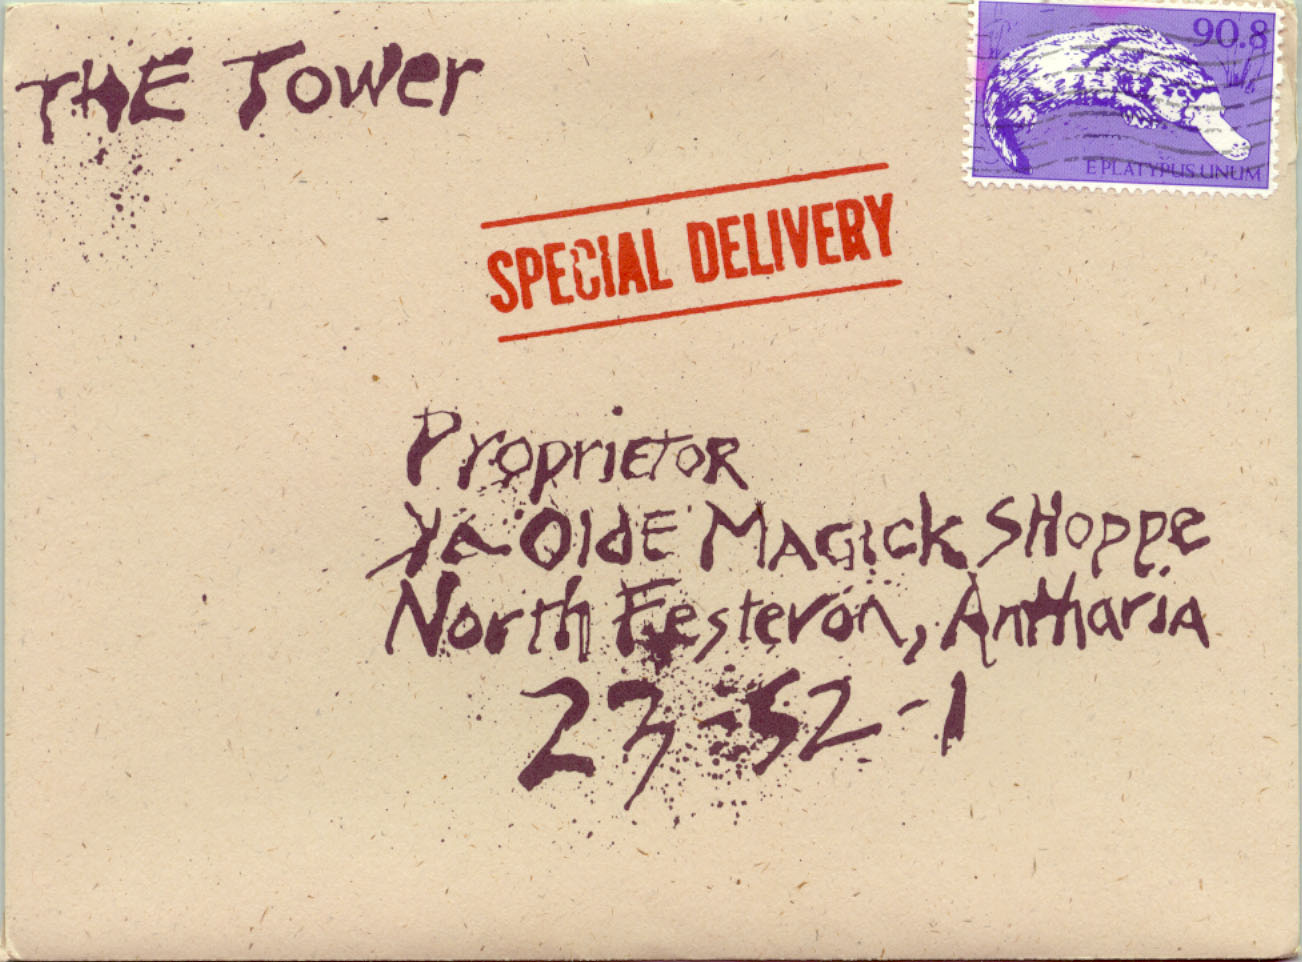 THE Tower
90.8
E PLATYPUS UNUM
SPECIAL DELIVERY
Proprietor
Ye Olde Magick Shoppe
North Festeron, Antharia
23-52-1